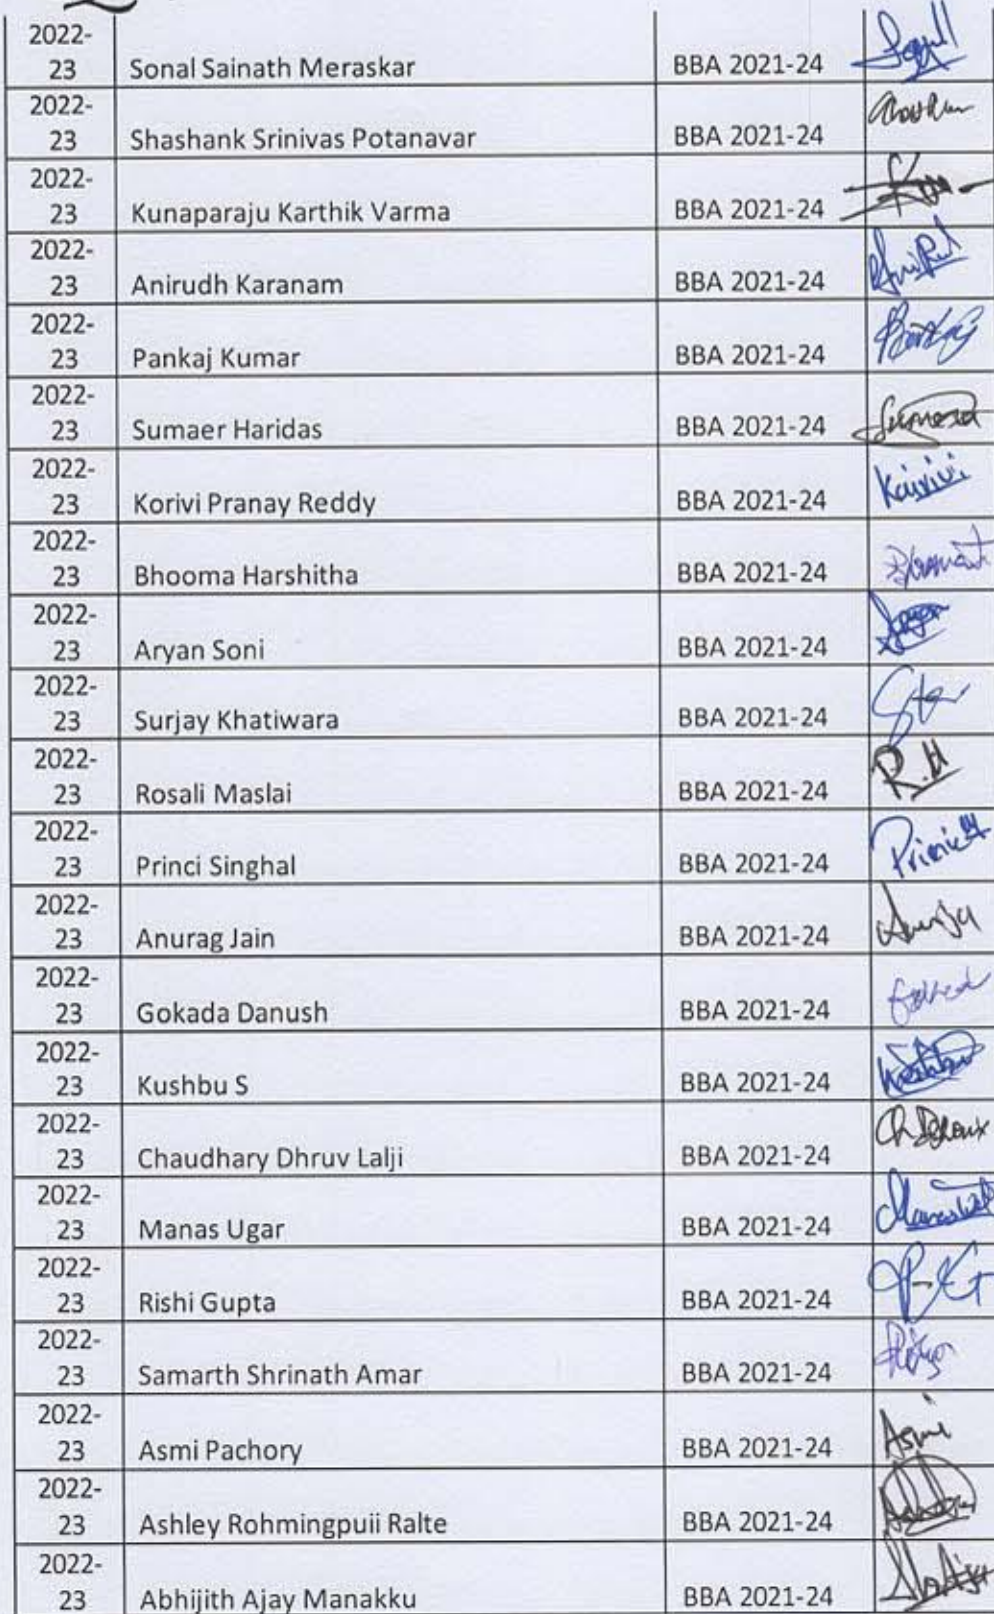 2022-
23 Sonal Sainath Meraskar BBA 2021-24
2022-
23 Shashank Srinivas Potanavar BBA 2021-24
2022-
23 Kunaparaju Karthik Varma BBA 2021-24
2022-
23 Anirudh Karanam BBA 2021-24
2022-
23 Pankaj Kumar BBA 2021-24
2022-
23 Sumaer Haridas BBA 2021-24
2022-
23 Korivi Pranay Reddy BBA 2021-24
2022-
23 Bhooma Harshitha BBA 2021-24
2022-
23 Aryan Soni BBA 2021-24
2022-
23 Surjay Khatiwara BBA 2021-24
2022-
23 Rosali Maslai BBA 2021-24
2022-
23 Princi Singhal BBA 2021-24
2022-
23 Anurag Jain BBA 2021-24
2022-
23 Gokada Danush BBA 2021-24
2022-
23 Kushbu S BBA 2021-24
2022-
23 Chaudhary Dhruv Lalji BBA 2021-24
2022-
23 Manas Ugar BBA 2021-24
2022-
23 Rishi Gupta BBA 2021-24
2022-
23 Samarth Shrinath Amar BBA 2021-24
2022-
23 Asmi Pachory BBA 2021-24 Asmi
2022-
23 Ashley Rohmingpuii Ralte BBA 2021-24
2022-
23 Abhijith Ajay Manakku BBA 2021-24